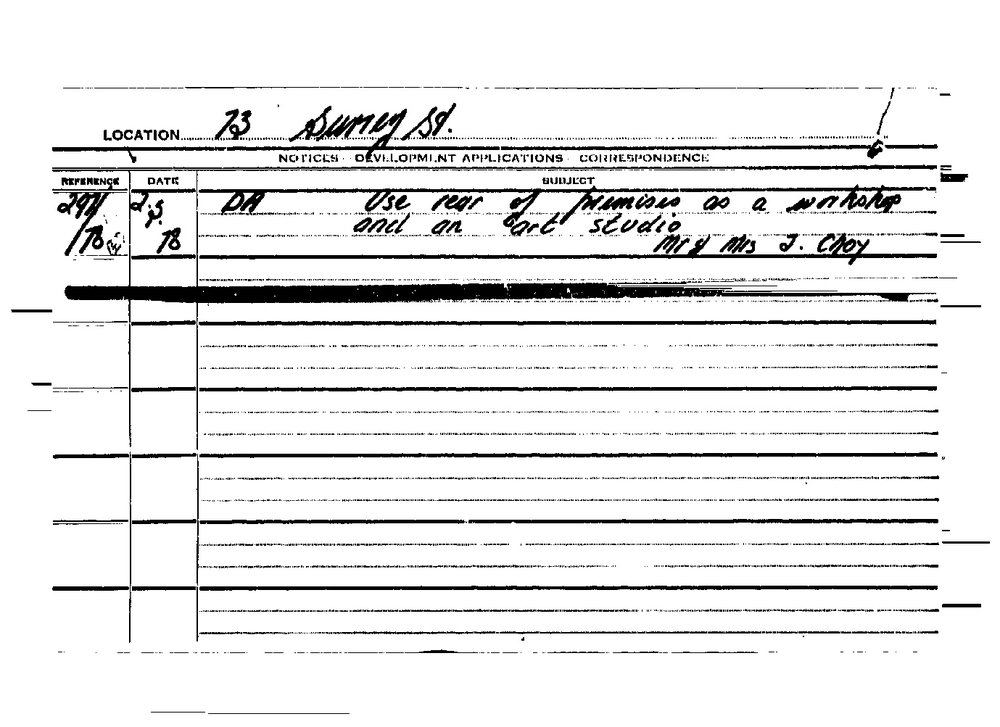 LOCATION 73 Surrey St.
NOTICES · DEVELOPMENT APPLICATIONS · CORRESPONDENCE
REFERENCE DATE SUBJECT
297/ 2.5. DA Use rear of premises as a workshop
/78 78 and an art studio
Mr & Mrs J. Choy